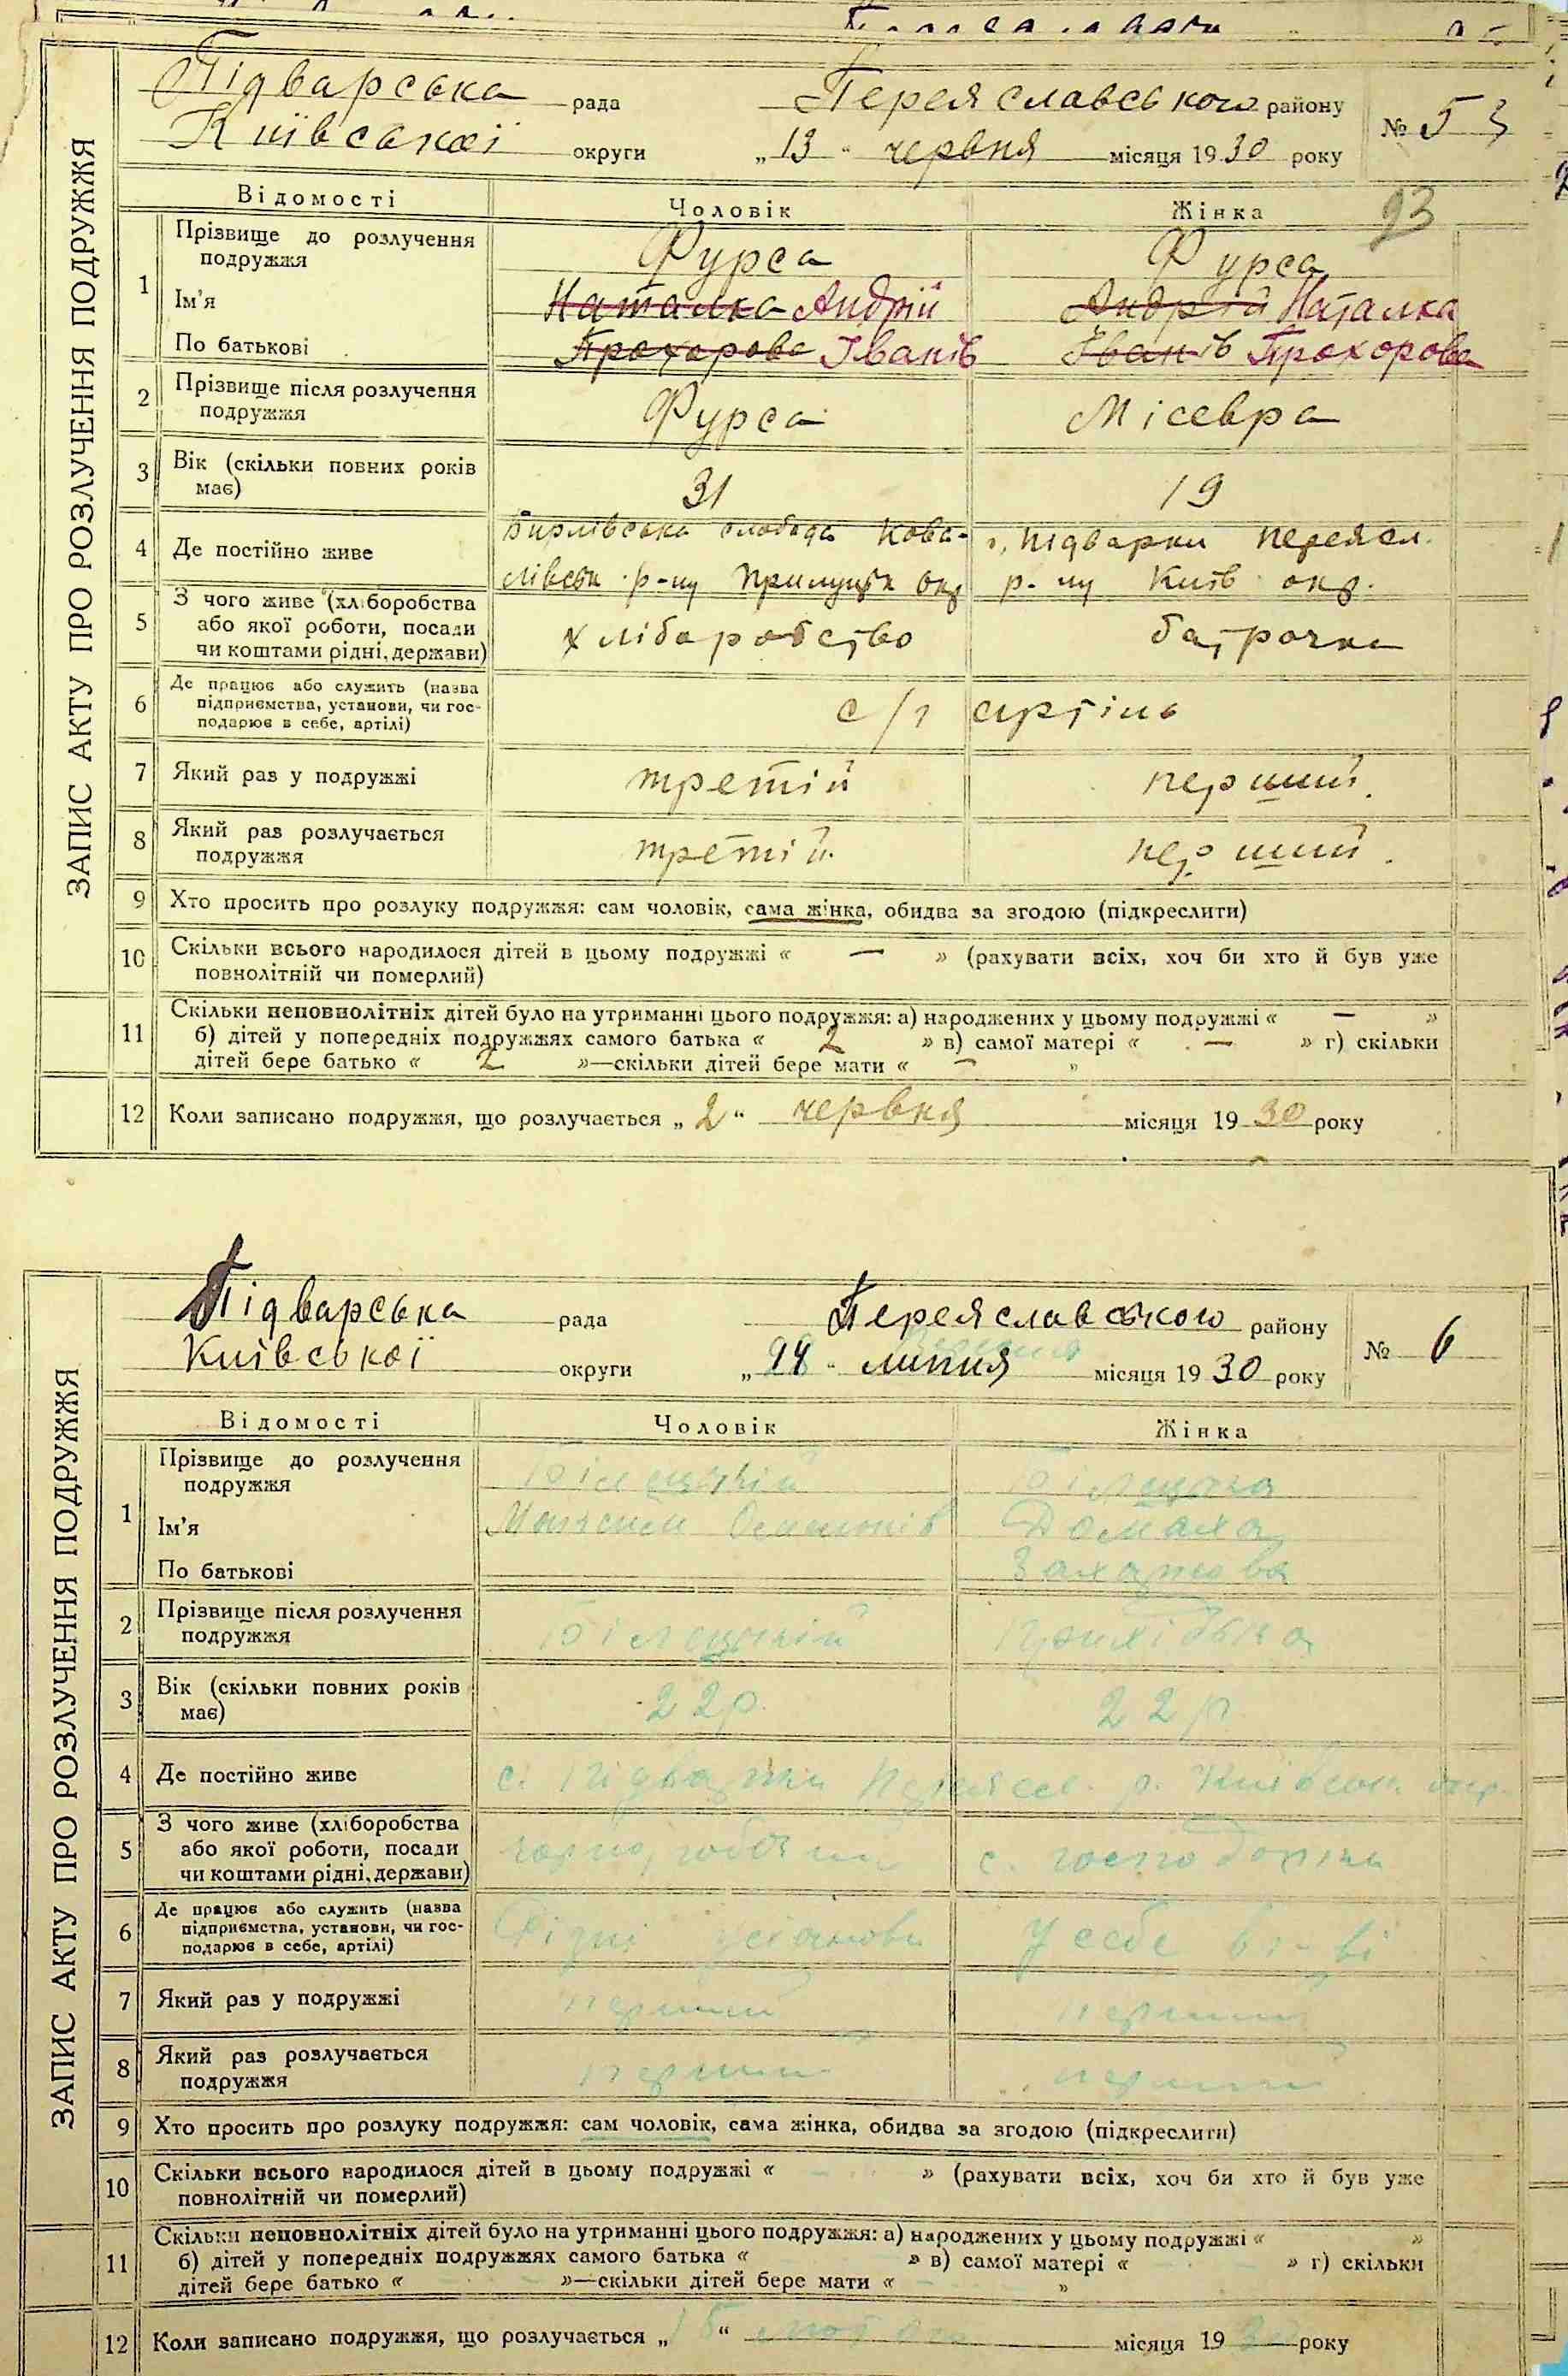 ЗАПИС АКТУ ПРО РОЗЛУЧЕННЯ ПОДРУЖЖЯ
Підварська рада Переяславського району № 5
Київської округи „13“ червня місяця 1930 року
93
Відомості Чоловік Жінка
1 Прізвище до розлучення Фурса Фурса
подружжя
Ім'я Наталка Андрій Андрій Наталка
По батькові Прохорова Іванів Іванів Прохорова
2 Прізвище після розлучення Фурса Місевра
подружжя
3 Вік (скільки повних років 31 19
має)
4 Де постійно живе слобода Кова- с. Підварки Переясл.
лівськ р-ну Прилуцьк окр р-ну Київ окр.
5 З чого живе (хліборобства
або якої роботи, посади хліборобство батрачка
чи коштами рідні, держави)
6 Де працює або служить (назва
підприємства, установи, чи гос- с/г артіль
подарює в себе, артілі)
7 Який раз у подружжі третій перший
8 Який раз розлучається третій перший
подружжя
9 Хто просить про розлуку подружжя: сам чоловік, сама жінка, обидва за згодою (підкреслити)
10 Скільки всього народилося дітей в цьому подружжі « — » (рахувати всіх, хоч би хто й був уже
повнолітній чи померлий)
11 Скільки неповнолітніх дітей було на утриманні цього подружжя: а) народжених у цьому подружжі « — »
б) дітей у попередніх подружжях самого батька « 2 » в) самої матері « — » г) скільки
дітей бере батько « 2 »—скільки дітей бере мати « — »
12 Коли записано подружжя, що розлучається „2“ червня місяця 1930 року
ЗАПИС АКТУ ПРО РОЗЛУЧЕННЯ ПОДРУЖЖЯ
Підварська рада Переяславського району № 6
Київської округи липня місяця 1930 року
Відомості Чоловік Жінка
1 Прізвище до розлучення
подружжя
Ім'я Домаха
По батькові Захарова
2 Прізвище після розлучення
подружжя
3 Вік (скільки повних років 22 р. 22 р.
має)
4 Де постійно живе с. Підварки Переясл. р. Київськ. окр.
5 З чого живе (хліборобства
або якої роботи, посади
чи коштами рідні, держави)
6 Де працює або служить (назва
підприємства, установи, чи гос- Різні установи у себе в г-ві
подарює в себе, артілі)
7 Який раз у подружжі перший перший
8 Який раз розлучається перший перший
подружжя
9 Хто просить про розлуку подружжя: сам чоловік, сама жінка, обидва за згодою (підкреслити)
10 Скільки всього народилося дітей в цьому подружжі « » (рахувати всіх, хоч би хто й був уже
повнолітній чи померлий)
11 Скільки неповнолітніх дітей було на утриманні цього подружжя: а) народжених у цьому подружжі « »
б) дітей у попередніх подружжях самого батька « » в) самої матері « » г) скільки
дітей бере батько « »—скільки дітей бере мати « »
12 Коли записано подружжя, що розлучається „15“ лютого місяця 19 року